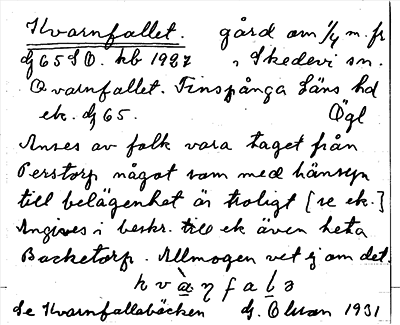 Kvarnfallet. gård om 1/4 m. fr
dj 65 SO. kb 1927 , Skedevi sn.
Qvarnfallet. Finspånga Läns hd
ek. dj 65. Ögl
Anses av folk vara taget från
Perstorp något som med hänsyn
till belägenhet är troligt [se ek.]
Angives i beskr. till ek även heta
Backetorp. Allmogen vet ej om det.
Se Kvarnfallsbäcken dj. Olsson 1931